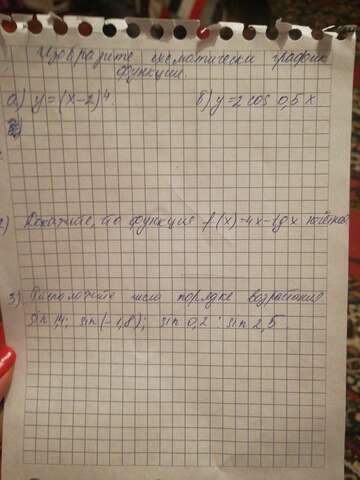 Изобразите схематически график
функции.
а) y=(x-2)⁴ б) y=2 cos 0,5x
2) Докажите, что функция f(x)=4x-tgx нечётная
3) Расположите числа порядке возрастание
sin 1,4; sin(-1,8); sin 0,2; sin 2,5.